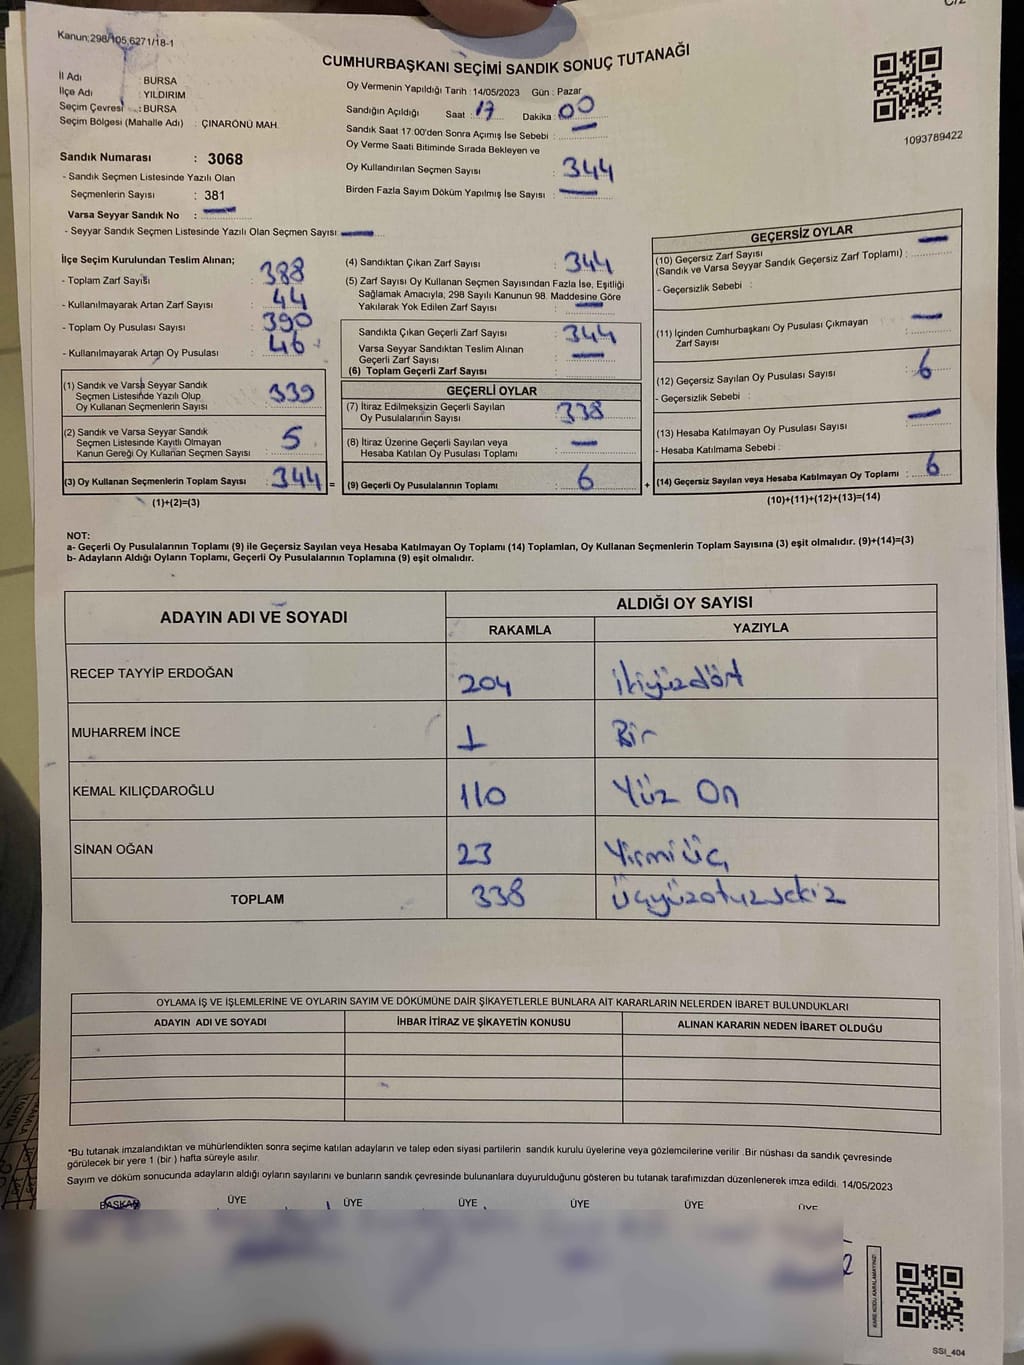 C/2
Kanun:298/105,6271/18-1
CUMHURBAŞKANI SEÇİMİ SANDIK SONUÇ TUTANAĞI
1093789422
İl Adı : BURSA
İlçe Adı : YILDIRIM
Seçim Çevresi : BURSA
Seçim Bölgesi (Mahalle Adı) : ÇINARÖNÜ MAH.
Sandık Numarası : 3068
- Sandık Seçmen Listesinde Yazılı Olan
Seçmenlerin Sayısı : 381
Varsa Seyyar Sandık No : —
- Seyyar Sandık Seçmen Listesinde Yazılı Olan Seçmen Sayısı —
Oy Vermenin Yapıldığı Tarih : 14/05/2023 Gün : Pazar
Sandığın Açıldığı Saat : 17 Dakika : 00
Sandık Saat 17.00'den Sonra Açımış İse Sebebi : —
Oy Verme Saati Bitiminde Sırada Bekleyen ve
Oy Kullandırılan Seçmen Sayısı : 344
Birden Fazla Sayım Döküm Yapılmış İse Sayısı : —
İlçe Seçim Kurulundan Teslim Alınan;
- Toplam Zarf Sayısı : 388
- Kullanılmayarak Artan Zarf Sayısı : 44
- Toplam Oy Pusulası Sayısı : 390
- Kullanılmayarak Artan Oy Pusulası : 46
(1) Sandık ve Varsa Seyyar Sandık
Seçmen Listesinde Yazılı Olup
Oy Kullanan Seçmenlerin Sayısı : 339
(2) Sandık ve Varsa Seyyar Sandık
Seçmen Listesinde Kayıtlı Olmayan
Kanun Gereği Oy Kullanan Seçmen Sayısı : 5
(3) Oy Kullanan Seçmenlerin Toplam Sayısı : 344 =
(1)+(2)=(3)
(4) Sandıktan Çıkan Zarf Sayısı : 344
(5) Zarf Sayısı Oy Kullanan Seçmen Sayısından Fazla İse, Eşitliği
Sağlamak Amacıyla; 298 Sayılı Kanunun 98. Maddesine Göre
Yakılarak Yok Edilen Zarf Sayısı : —
Sandıkta Çıkan Geçerli Zarf Sayısı : 344
Varsa Seyyar Sandıktan Teslim Alınan
Geçerli Zarf Sayısı : —
(6) Toplam Geçerli Zarf Sayısı :
GEÇERLİ OYLAR
(7) İtiraz Edilmeksizin Geçerli Sayılan
Oy Pusulalarının Sayısı : 338
(8) İtiraz Üzerine Geçerli Sayılan veya
Hesaba Katılan Oy Pusulası Toplamı : —
(9) Geçerli Oy Pusulalarının Toplamı : 6 +
GEÇERSİZ OYLAR
(10) Geçersiz Zarf Sayısı
(Sandık ve Varsa Seyyar Sandık Geçersiz Zarf Toplamı) : —
- Geçersizlik Sebebi :
(11) İçinden Cumhurbaşkanı Oy Pusulası Çıkmayan
Zarf Sayısı : —
(12) Geçersiz Sayılan Oy Pusulası Sayısı : 6
- Geçersizlik Sebebi :
(13) Hesaba Katılmayan Oy Pusulası Sayısı : —
- Hesaba Katılmama Sebebi :
(14) Geçersiz Sayılan veya Hesaba Katılmayan Oy Toplamı : 6
(10)+(11)+(12)+(13)=(14)
NOT:
a- Geçerli Oy Pusulalarının Toplamı (9) ile Geçersiz Sayılan veya Hesaba Katılmayan Oy Toplamı (14) Toplamları, Oy Kullanan Seçmenlerin Toplam Sayısına (3) eşit olmalıdır. (9)+(14)=(3)
b- Adayların Aldığı Oyların Toplamı, Geçerli Oy Pusulalarının Toplamına (9) eşit olmalıdır.
ADAYIN ADI VE SOYADI ALDIĞI OY SAYISI
RAKAMLA YAZIYLA
RECEP TAYYİP ERDOĞAN 204 ikiyüzdört
MUHARREM İNCE 1 Bir
KEMAL KILIÇDAROĞLU 110 Yüz On
SİNAN OĞAN 23 Yirmi üç
TOPLAM 338 Üçyüzotuzsekiz
OYLAMA İŞ VE İŞLEMLERİNE VE OYLARIN SAYIM VE DÖKÜMÜNE DAİR ŞİKAYETLERLE BUNLARA AİT KARARLARIN NELERDEN İBARET BULUNDUKLARI
ADAYIN ADI VE SOYADI İHBAR İTİRAZ VE ŞİKAYETİN KONUSU ALINAN KARARIN NEDEN İBARET OLDUĞU
*Bu tutanak imzalandıktan ve mühürlendikten sonra seçime katılan adayların ve talep eden siyasi partilerin sandık kurulu üyelerine veya gözlemcilerine verilir .Bir nüshası da sandık çevresinde
görülecek bir yere 1 (bir ) hafta süreyle asılır.
Sayım ve döküm sonucunda adayların aldığı oyların sayılarını ve bunların sandık çevresinde bulunanlara duyurulduğunu gösteren bu tutanak tarafımızdan düzenlenerek imza edildi. 14/05/2023
BAŞKAN ÜYE ÜYE ÜYE ÜYE ÜYE ÜYE
KARE KODU KARALAMAYINIZ!
SSI_404